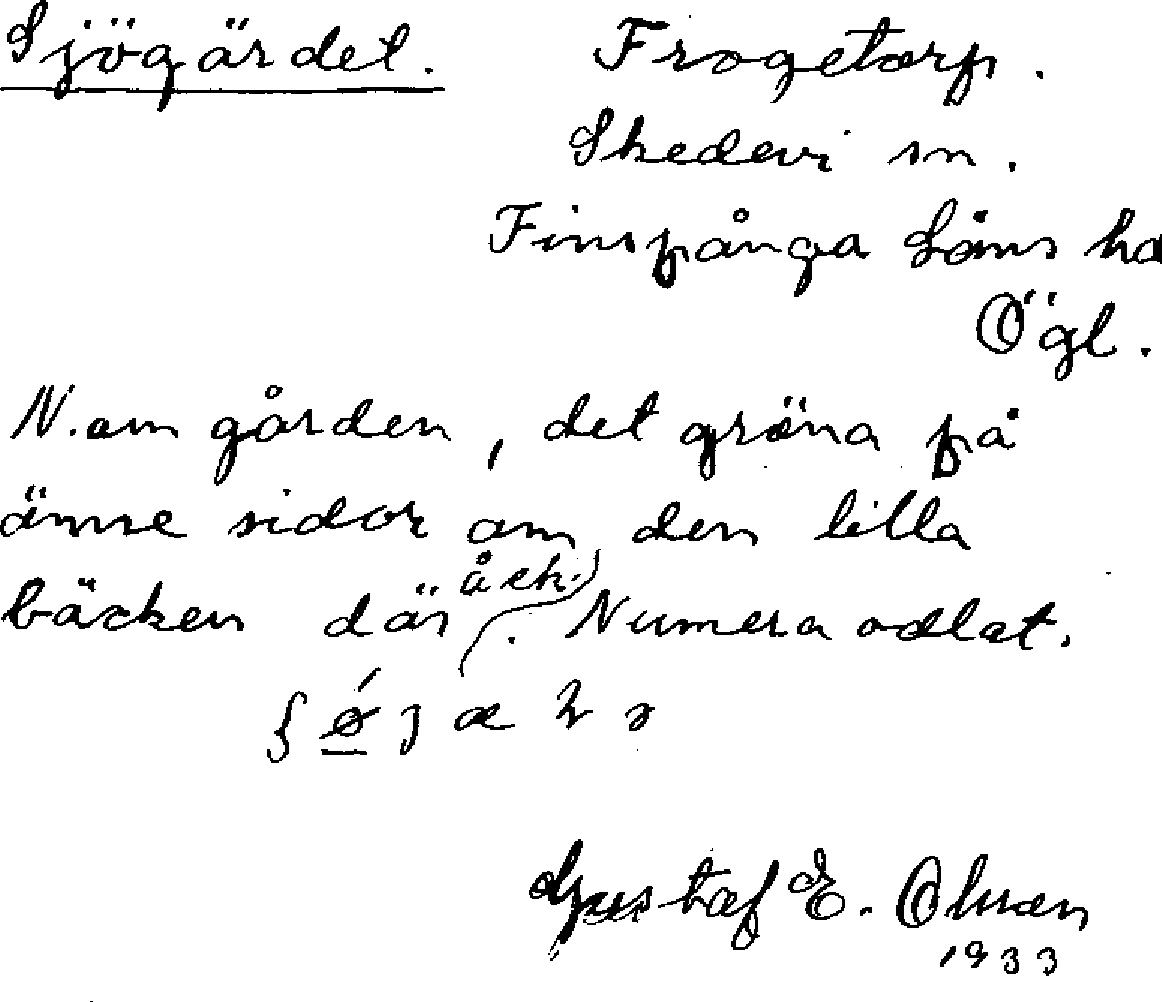 Sjögärdet. Frogetorp.
Skedevi sn.
Finspånga Läns hd
Ögl.
N. om gården, det gröna på
ömse sidor om den lilla
bäcken där åch. Numera odlat.
Gustaf E. Olsson
1933